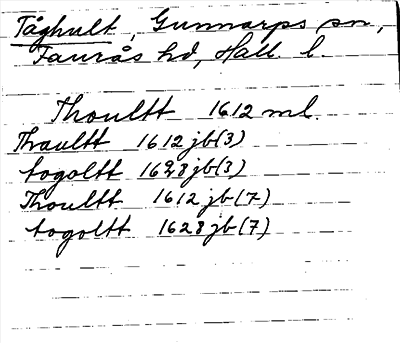 Tåghult, Gunnarps sn,
Faurås hd, Hall. l.
Thoultt 1612 ml.
Thaultt 1612 jb(3)
togoltt 1628 jb(3)
Thoultt 1612 jb(7)
togoltt 1628 jb(7)